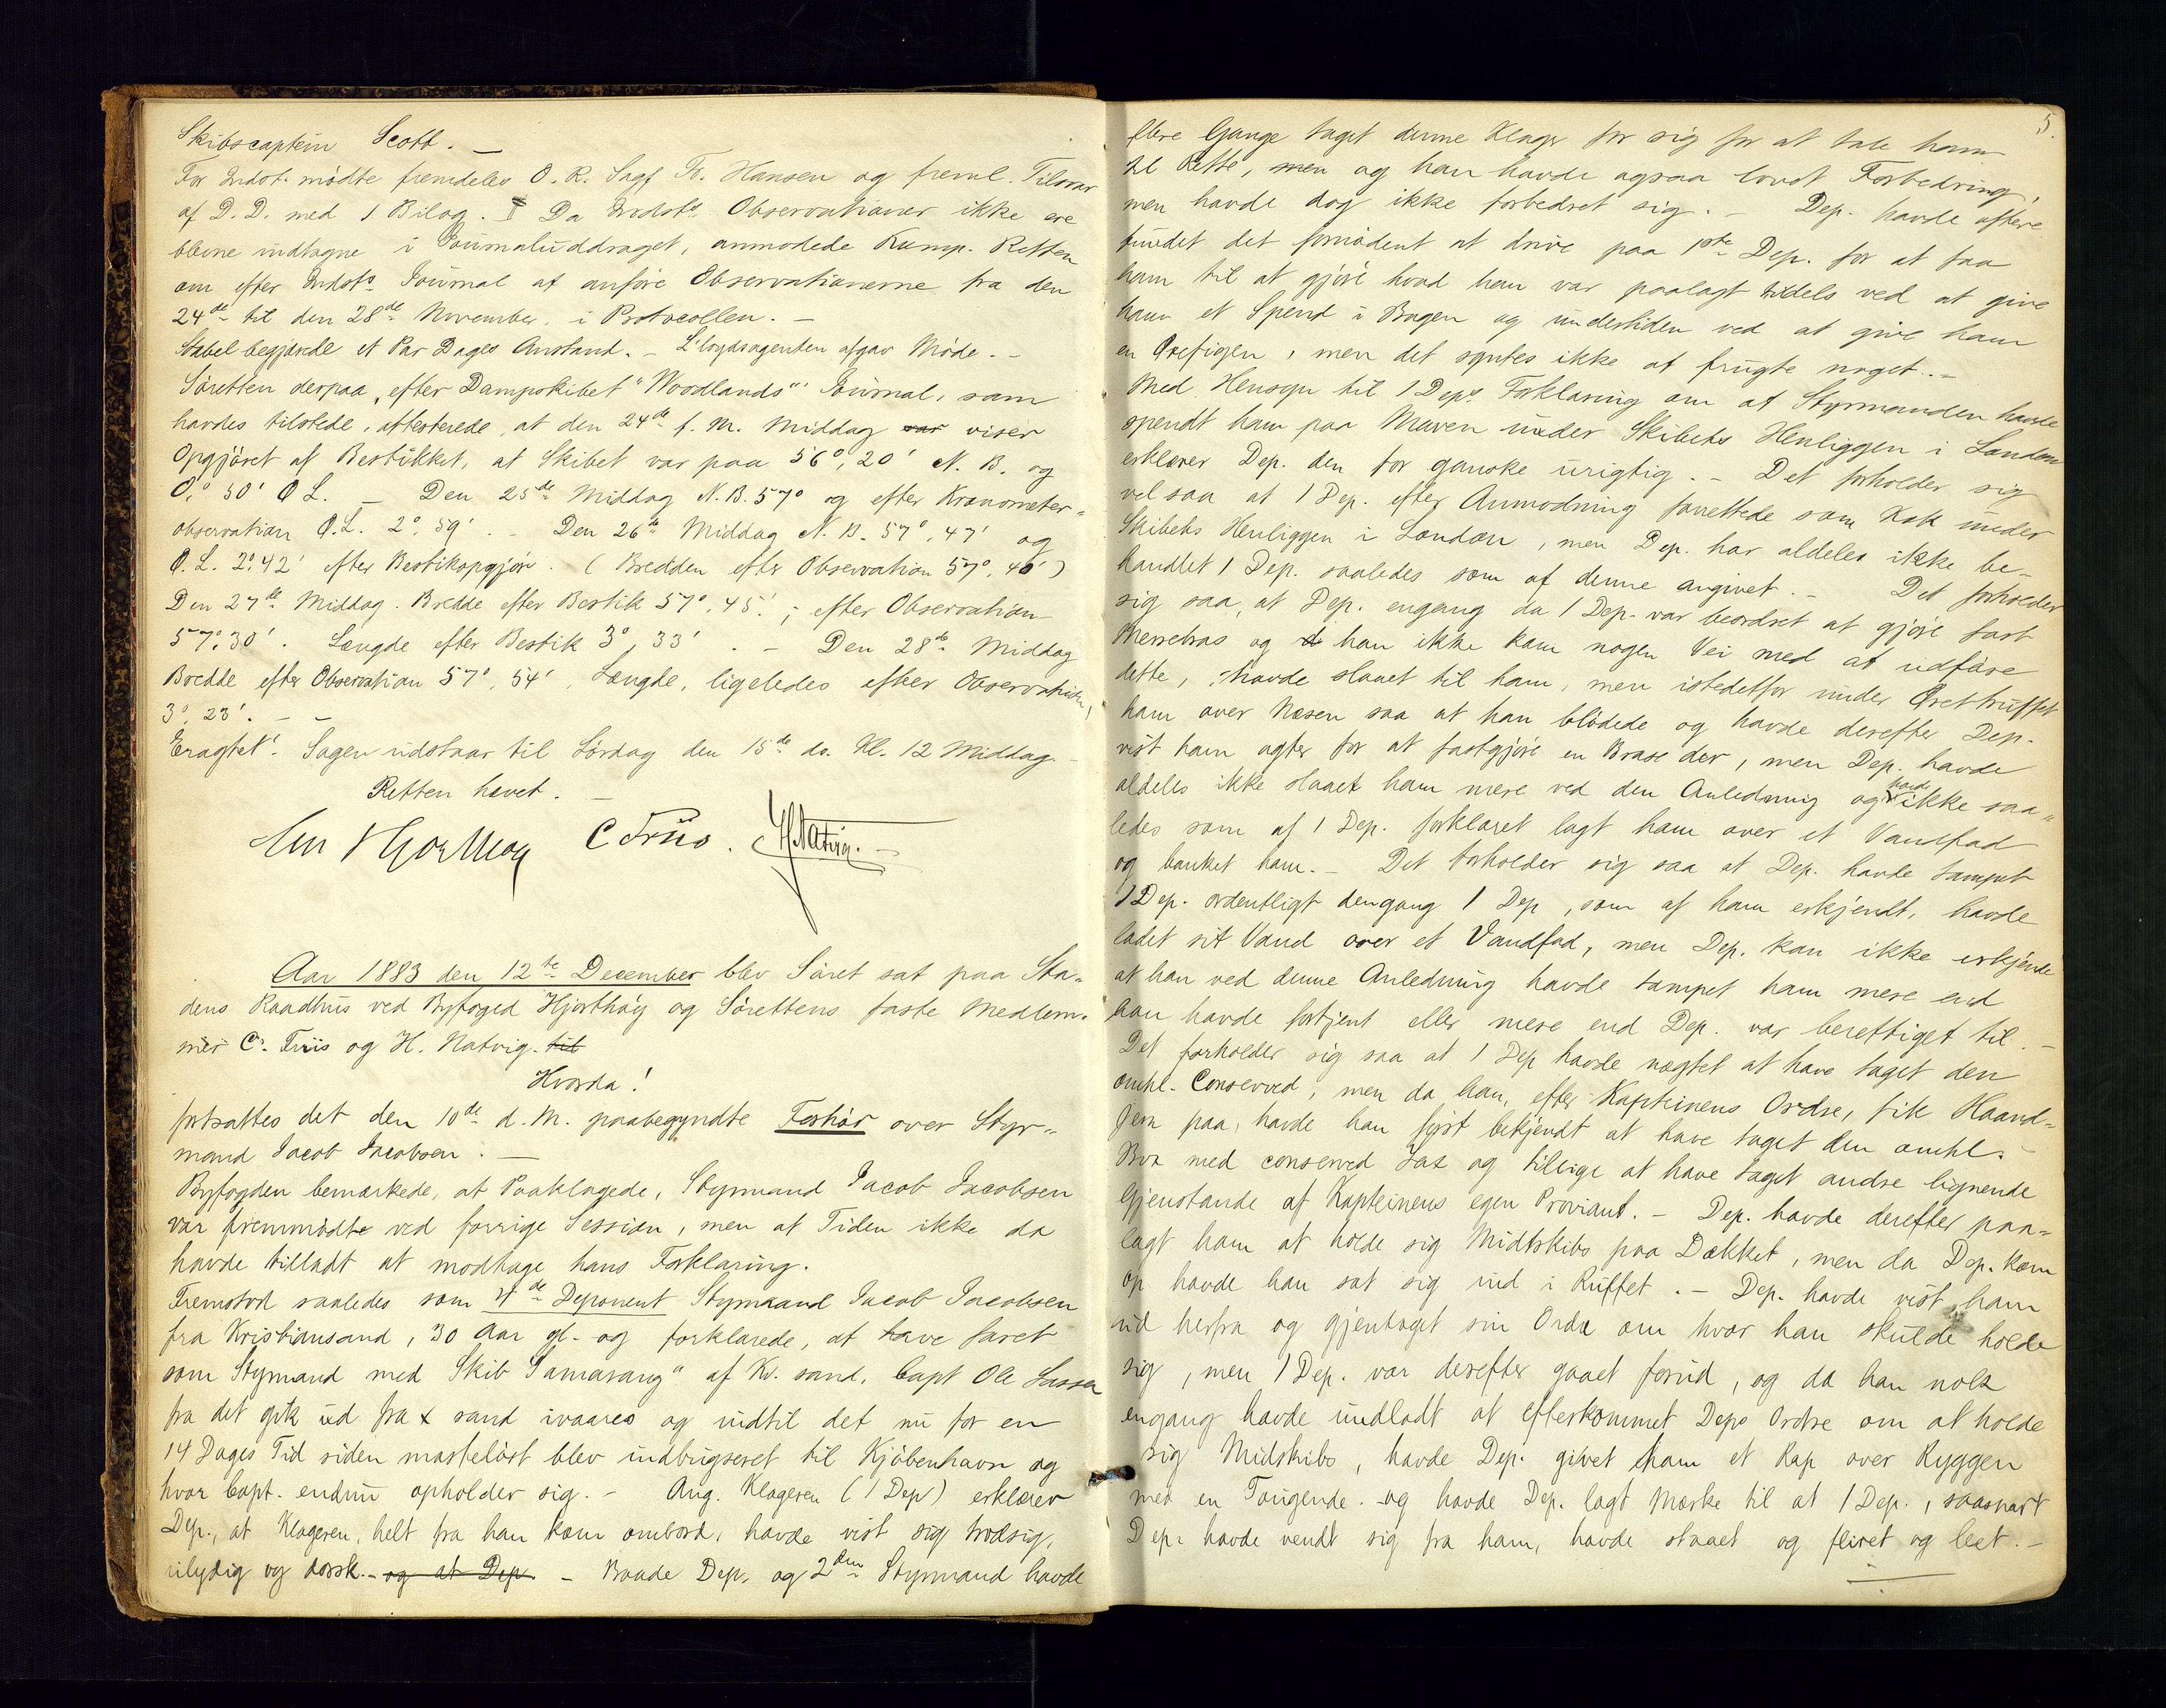 Skibscaptein Scott. —
For Indst. mødte fremdeles O. R. Sagf. Fr. Hansen og freml. Tilsvar
af D. D. med 1 Bilag. Da Indsts. Observationer ikke ere
blevne indtagne i Journaluddraget, anmodede Komp. Retten
om efter Indsts. Journal at anføre Observationerne fra den
24de til den 28de November i Protocollen. —
Stabel begjærede et Par Dages Anstand. — Lloydsagenten afgav Møde. —
Søretten derpaa, efter Dampskibet "Woodlands" Journal, som
havdes tilstede, attesterede, at den 24de f. M. Middag var viser
Opgjøret af Bestikket, at Skibet var paa 56°, 20' N. B. og
0,° 50' Ø L. — Den 25de Middag N. B. 57° og efter Kronometer-
observation Ø. L. 2°, 59'. — Den 26de Middag N. B. 57°, 47' og
Ø. L. 2°. 42' efter Bestikopgjør. (Bredden efter Observation 57°, 46')
Den 27de Middag. Bredde efter Bestik 57°, 45'. ; efter Observation
57°, 30'. Længde efter Bestik 3°, 33'. — Den 28de Middag
Bredde efter Observation 57°, 54', Længde, ligeledes efter Observation,
3°, 23'. — —
Eragtet! Sagen udstaar til Lørdag den 15de ds. Kl. 12 Middag. —
Retten hævet. —
C Friis. H. Natvig. —
Aar 1883 den 12te December blev Søret sat paa Sta-
dens Raadhus ved Byfoged Hjorthøy og Sørettens faste Medlem-
mer C. Friis og H. Natvig. til
Hvorda!
fortsattes det den 10de d. M. paabegyndte Forhør over Styr-
mand Jacob Jacobsen. —
Byfogden bemærkede, at Paaklagede, Styrmand Jacob Jacobsen
var fremmødt ved forrige Session, men at Tiden ikke da
havde tilladt at modtage hans Forklaring.
Fremstod saaledes som 4de Deponent Styrmand Jacob Jacobsen
fra Kristiansand, 30 Aar gl. og forklarede, at have faret
som Styrmand med Skib "Samarang" af Kr. sand, Capt Ole Lassen
fra det gik ud fra X sand ivaares og indtil det nu for en
14 Dages Tid siden masteløst blev indbugseret til Kjøbenhavn og
hvor Capt. endnu opholder sig. — Ang. Klageren (1 Dep) erklærer
Dep., at Klageren, helt fra han kom ombord, havde vist sig trodsig,
ulydig og dorsk. — og at Dep. — Baade Dep. og 2den Styrmand havde
5.
flere Gange taget denne Klager for sig for at tale ham
til Rette, men og han havde ogsaa lovet Forbedring,
men havde dog ikke forbedret sig. — Dep. havde oftere
fundet det fornødent at drive paa 1ste Dep. for at faa
ham til at gjøre hvad han var paalagt tildels ved at give
ham et Spend i Bagen og undertiden ved at give ham
en Ørefigen, men det syntes ikke at frugte noget. —
Med Hensyn til 1 Deps Forklaring om at Styrmanden havde
spendt ham paa Maven under Skibets Henliggen i London
erklærer Dep. den for ganske urigtig. — Det forholder sig
vel saa at 1 Dep. efter Anmodning forrettede som Kok under
Skibets Henliggen i London, men Dep. har aldeles ikke be-
handlet 1 Dep. saaledes som af denne angivet. — Det forholder
sig saa, at Dep. engang da 1 Dep. var beordret at gjøre fast
Merrebras og han ikke kom nogen Vei med at udføre
dette, havde slaaet til ham, men istedetfor under Øret truffet
ham over Næsen saa at han blødede og havde derefter Dep.
vist ham agter for at fastgjøre en Brase der, men Dep. havde
aldeles ikke slaaet ham mere ved den Anledning og havde ikke saa-
ledes som af 1 Dep. forklaret lagt ham over et Vandfad
og banket ham. — Det forholder sig saa at Dep. havde tampet
1 Dep. ordentligt dengang 1 Dep, som af ham erkjendt, havde
ladet sit Vand over et Vandfad, men Dep. kan ikke erkjende
at han ved denne Anledning havde tampet ham mere end
han havde fortjent eller mere end Dep. var berettiget til. —
Det forholder sig saa at 1 Dep havde nægtet at have taget den
omhl. Conserved, men da han, efter Kapteinens Ordre, fik Haand-
jern paa, havde han først bekjendt at have taget den omhl.
Box med conserved Lax og tillige at have taget andre lignende
Gjenstande af Kapteinens egen Proviant. — Dep. havde derefter paa-
lagt ham at holde sig Midtskibs paa Dækket, men da Dep. kom
op havde han sat sig ind i Ruffet. — Dep. havde vist ham
ud herfra og gjentaget sin Ordre om hvor han skulde holde
sig, men 1 Dep. var derefter gaaet forud, og da han nok
engang havde undladt at efterkommet Deps Ordre om at holde
sig Midskibs, havde Dep. givet ham et Rap over Ryggen
med en Tougende. og havde Dep. lagt Mærke til at 1 Dep., saasnart
Dep. havde vendt sig fra ham, havde staaet og fliret og leet. —